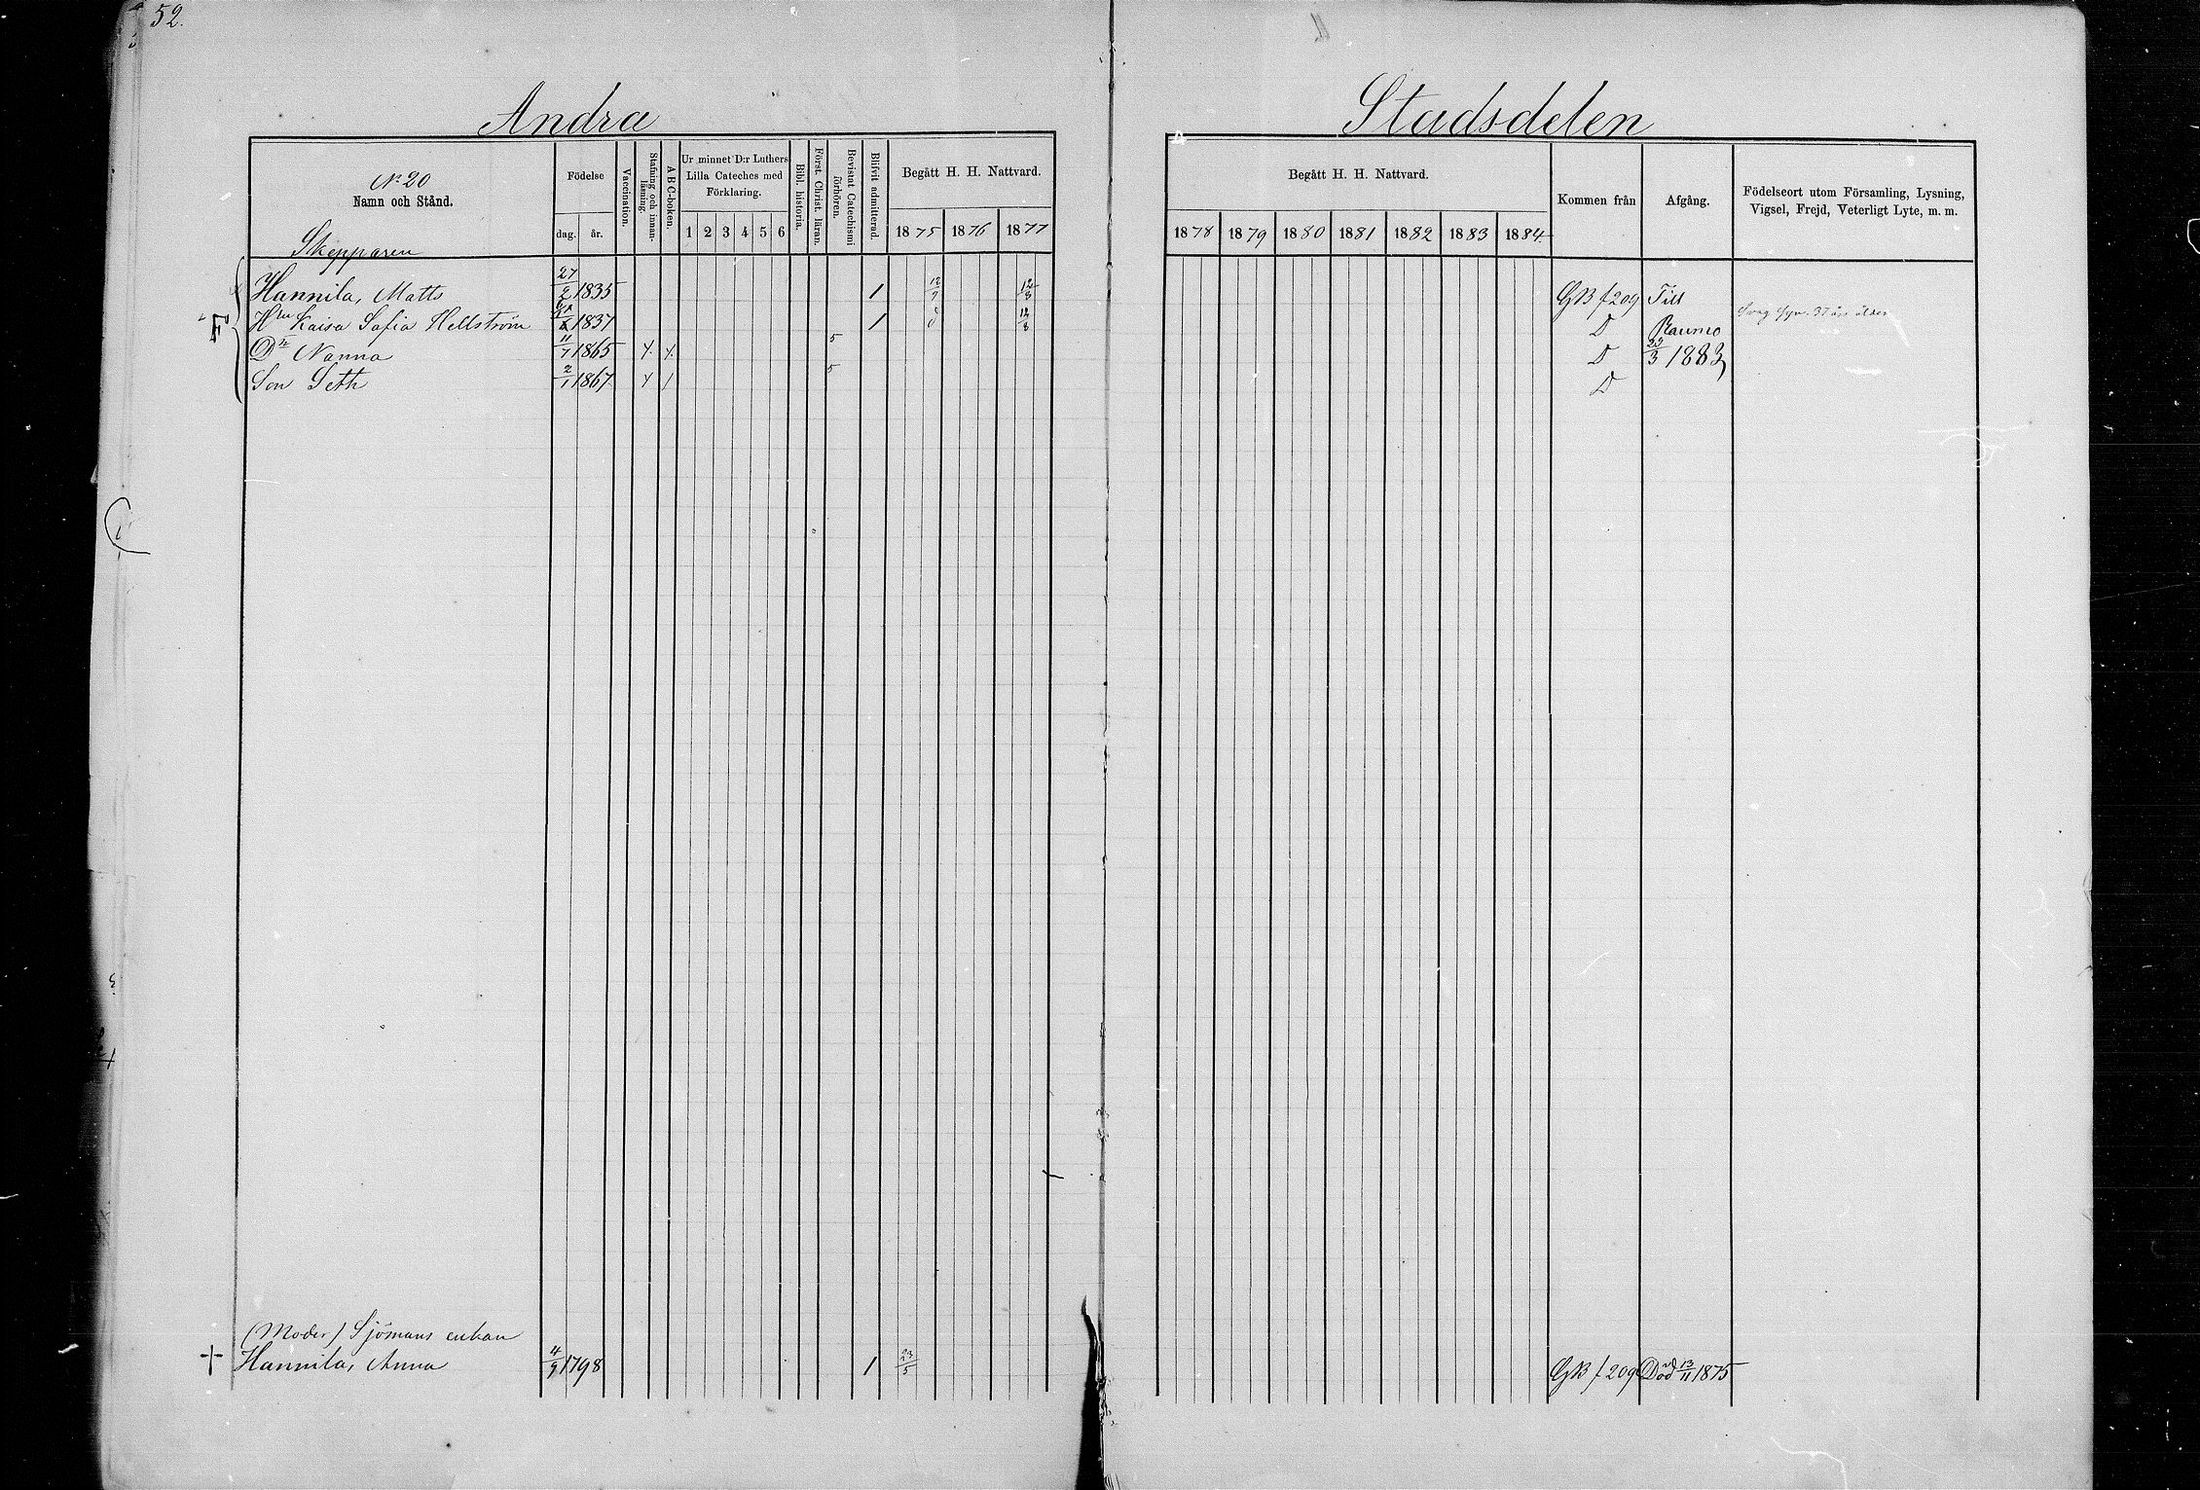 52.
Andra Stadsdelen
N:o 20
Namn och Stånd.
Födelse
dag. år.
Vaccination.
Stafning och innan-läsning.
ABC-boken.
Ur minnet D:r Luthers
Lilla Cateches med
Förklaring.
1 2 3 4 5 6
Bibl. historia.
Först. Christ. läran.
Bevistat Catechismi förhören.
Blifvit admitterad.
Begått H. H. Nattvard.
1875 1876 1877
Begått H. H. Nattvard.
1878 1879 1880 1881 1882 1883 1884
Kommen från
Afgång.
Födelseort utom Församling, Lysning,
Vigsel, Frejd, Veterligt Lyte, m. m.
Skepparen
Hannila, Matts 27/2 1835 1 12/9 12/8 GB f 209 Till
Hru Kaisa Sofia Hellström 1837 1 12/8 D Raumo Svag Syn. 37 års ålder
Dr Nanna 11/7 1865 5 D 23/3 1883
Son Seth 2/1 1867 5 D
(Moder) Sjömans enkan
† Hannila, Anna 4/9 1798 1 23/5 GB f 209 Död 13/11 1875